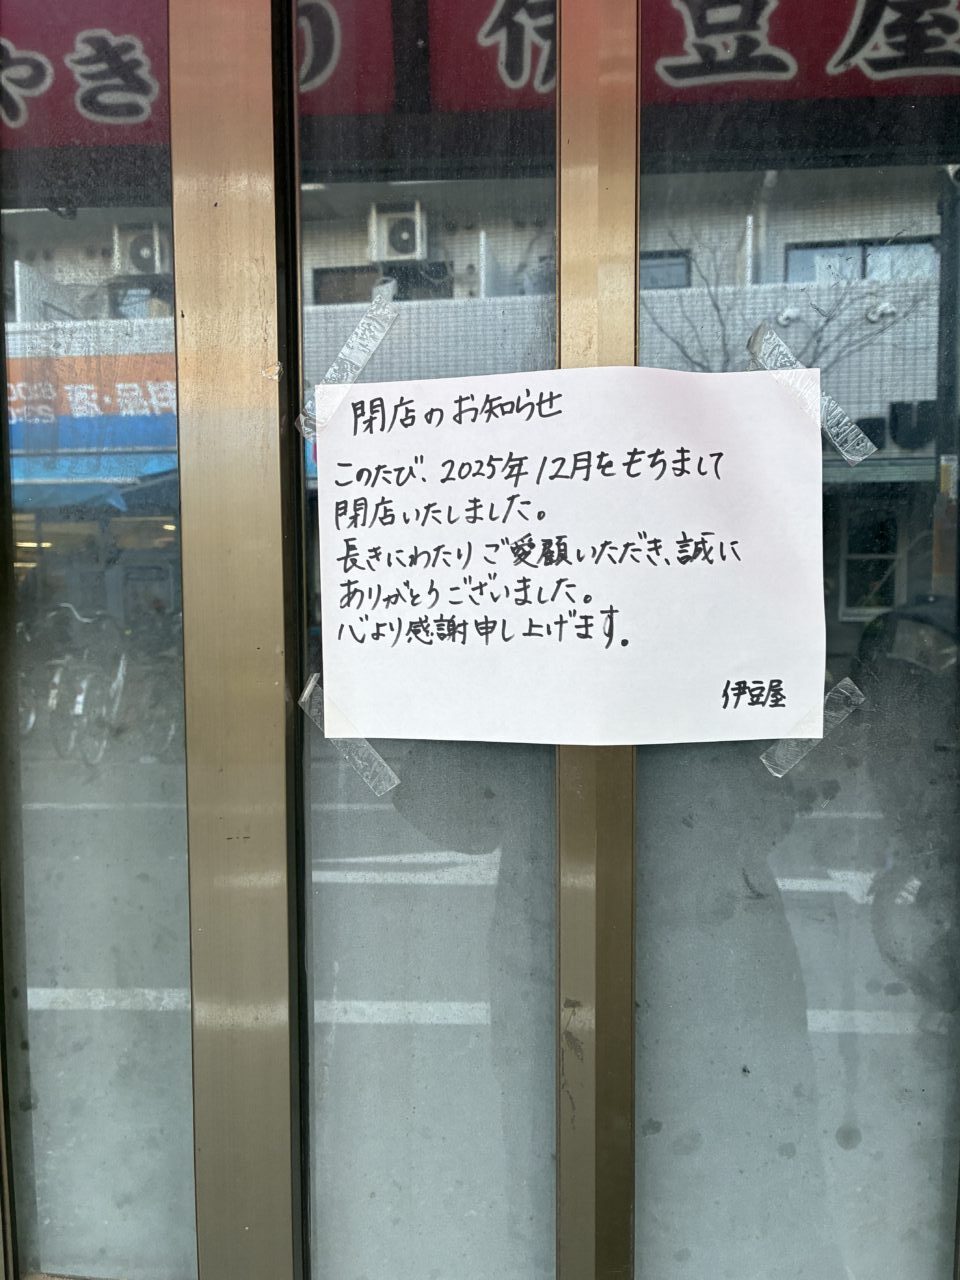 やきり 伊豆屋
閉店のお知らせ
このたび、2025年12月をもちまして
閉店いたしました。
長きにわたりご愛顧いただき、誠に
ありがとうございました。
心より感謝申し上げます。
伊豆屋